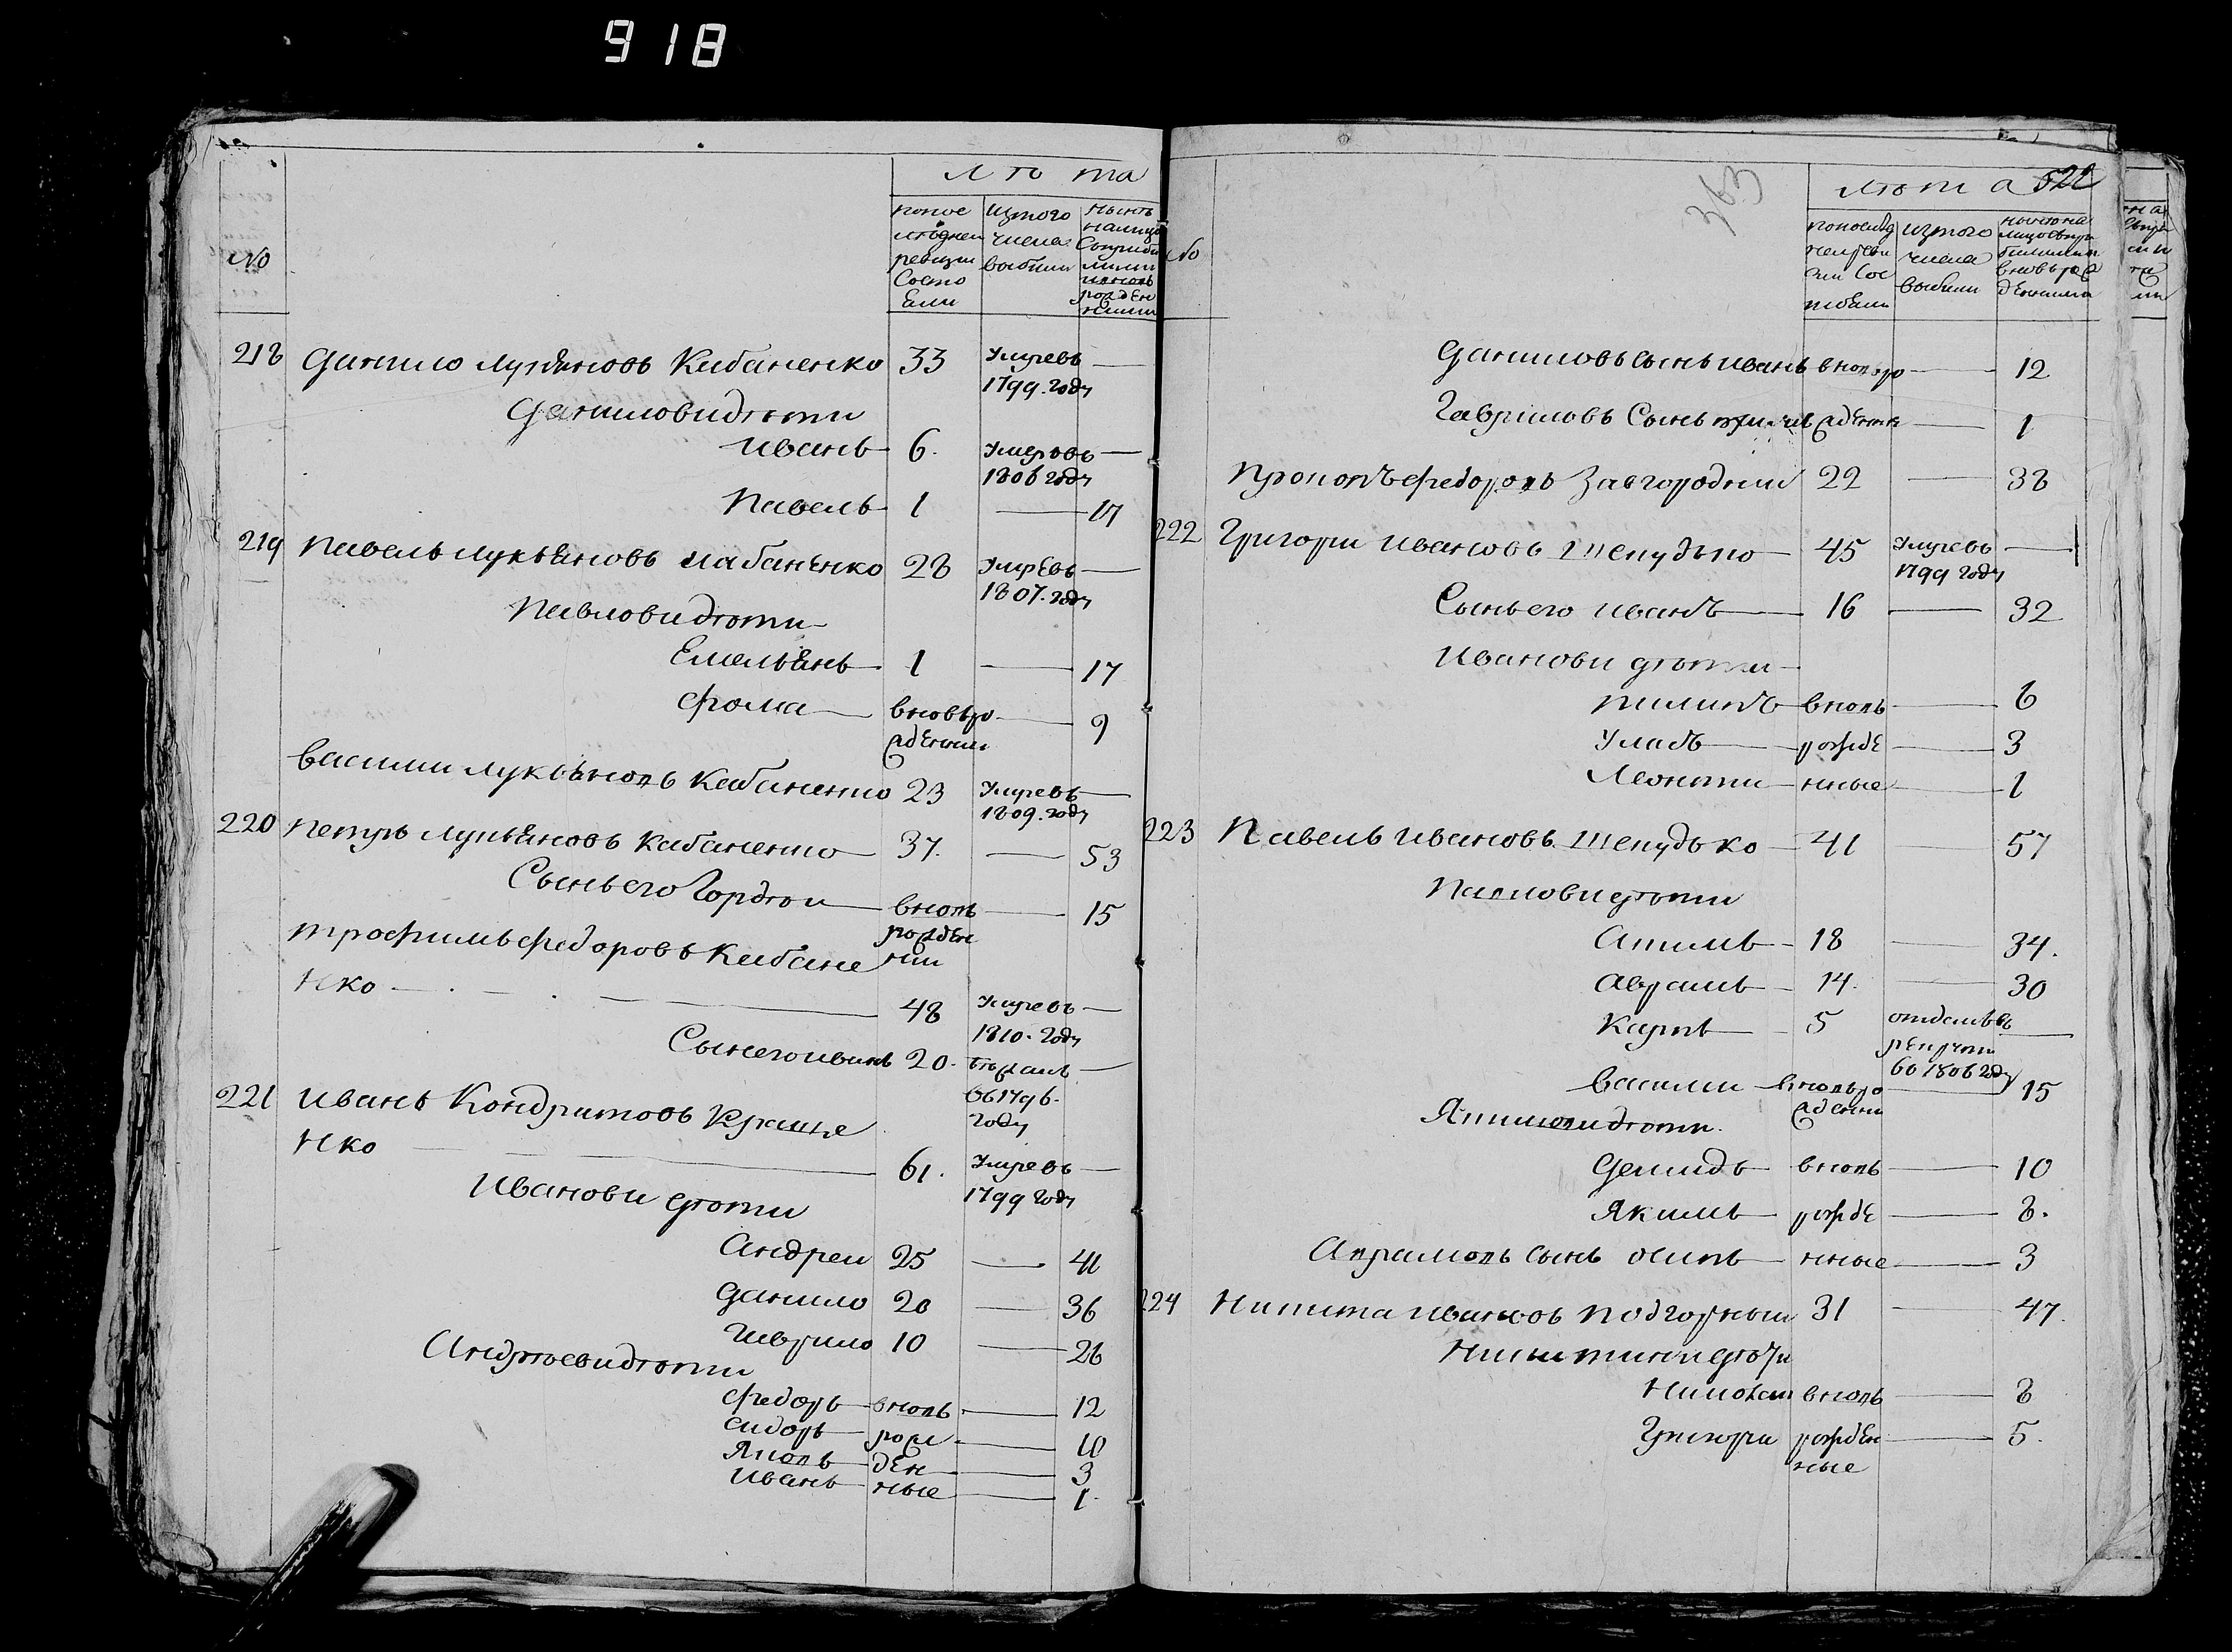 918
№
лѣта
попос
лѣдней
ревизии
состо
Ели
изтого
числа
выбыли
нынѣ
налицо
218 Данило Лукьяновъ Кабаненко 33 Умревъ —
1799. году
Даниловы дѣти
Иванъ 6. Умеровъ —
1806 году
Павелъ 1 — 17
219 Павелъ Лукьяновъ Кабаненко 28 Умревъ —
1807. году
Павловы дѣти
Емельянъ 1 — 17
Фома вновьро — 9
жденны
Василии Лукьяновъ Кабаненко 23 Умревъ —
1809. году
220 Петръ Лукьяновъ Кабаненко 37. — 53
Сынъ его Гордѣи вновь — 15
рожден
Трофимъ Федоровъ Кабане нии
нко — 48 Умревъ —
1810. году
Сынего иванъ 20. —
1796.
году
221 Иванъ Кондратовъ Краше
нко — 61. Умревъ —
1799 году
Ивановы дѣти
Андреи 25 — 41
Данило 20 — 36
Гаврило 10 — 26
Андрѣевы дѣти
Федоръ вновь — 12
Сидоръ рож — 10
Яковъ ден — 3
Иванъ ные — 1.
363
№
лѣта 522
изтого
числа
выбыли
Даниловъ сынъ иванъ вновьро — 12
Гавриловъ Сынъ жденны — 1
Прокопъ Федоровъ Завгородныи 22 — 38
222 Григори Ивановъ Шепудько 45 Умревъ —
1799 году
Сынъ его иванъ — 16 — 32
Ивановы дѣти —
Пилипъ вновь — 6
Уласъ рожде — 3
Леонти нные — 1
223 Павелъ Ивановъ Шепудько — 41 — 57
Павловы дѣти
Акимъ — 18 — 34.
Аврамъ — 14. — 30
Карпъ — 5 отданъ въ —
рекруты
во 1806 году
Василии вновьро — 15
жденны
Якимовы дѣти
Демидъ вновь — 10
Якимъ рожде — 8.
Аврамовъ сынъ осипъ нные — 3
224 Никита Ивановъ Подгорныи 31 — 47.
Никитины дѣти
Николаи вновь — 8
Григори рожден — 5.
ные